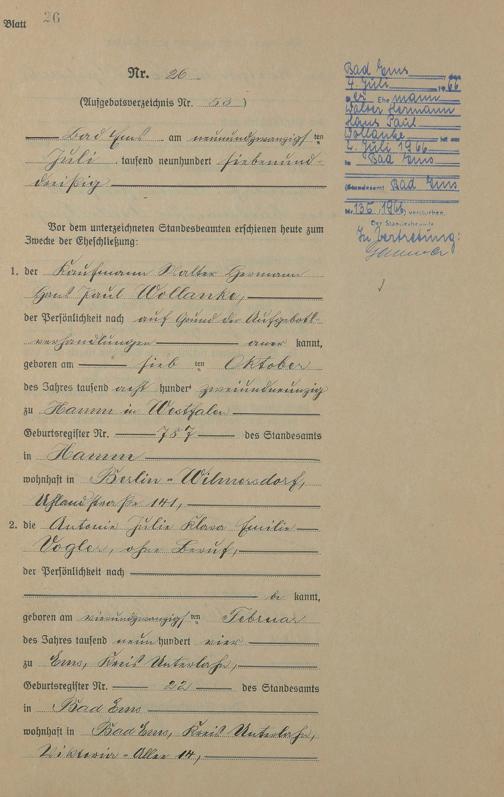 Blatt 26
Nr. 26
(Aufgebotsverzeichnis Nr. 53)
Bad Ems am neunundzwanzigsten
Juli tausend neunhundert siebenund-
dreißig
Vor dem unterzeichneten Standesbeamten erschienen heute zum
Zwecke der Eheschließung:
1. der Kaufmann Walter Hermann
Hans Paul Wollanke,
der Persönlichkeit nach auf Grund der Aufgebots-
verhandlungen anerkannt,
geboren am ten Oktober
des Jahres tausend acht hundert zweiundneunzig
zu Hamm in Westfalen
Geburtsregister Nr. 757 des Standesamts
in Hamm
wohnhaft in Berlin-Wilmersdorf,
Uhlandstraße 141,
2. die Antonie Julie Klara Emilie
Vogler, ohne Beruf,
der Persönlichkeit nach
be kannt,
geboren am vierundzwanzigsten Februar
des Jahres tausend neun hundert vier
zu Ems, Kreis Unterlahn,
Geburtsregister Nr. 22 des Standesamts
in Bad Ems
wohnhaft in Bad Ems, Kreis Unterlahn,
Viktoria-Allee 14,
Bad Ems
7. Juli 1966
Ehemann
Walter Hermann
Hans Paul
Wollanke ist am
Juli 1966
in Bad Ems
(Standesamt Bad Ems
Nr. 136/1966) verstorben.
Der Standesbeamte
In Vertretung: